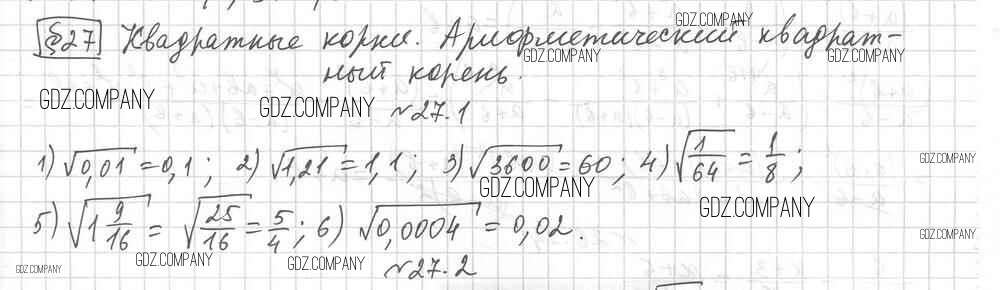 §27 Квадратные корни. Арифметический квадрат-
ный корень.
№27.1
1) √0,01 = 0,1; 2) √1,21 = 1,1; 3) √3600 = 60; 4) √(1/64) = 1/8;
5) √(1 9/16) = √(25/16) = 5/4; 6) √0,0004 = 0,02.
№27.2
GDZ.COMPANY
GDZ.COMPANY
GDZ.COMPANY
GDZ.COMPANY
GDZ.COMPANY
GDZ.COMPANY
GDZ.COMPANY
GDZ.COMPANY
GDZ.COMPANY
GDZ.COMPANY
GDZ.COMPANY
GDZ.COMPANY